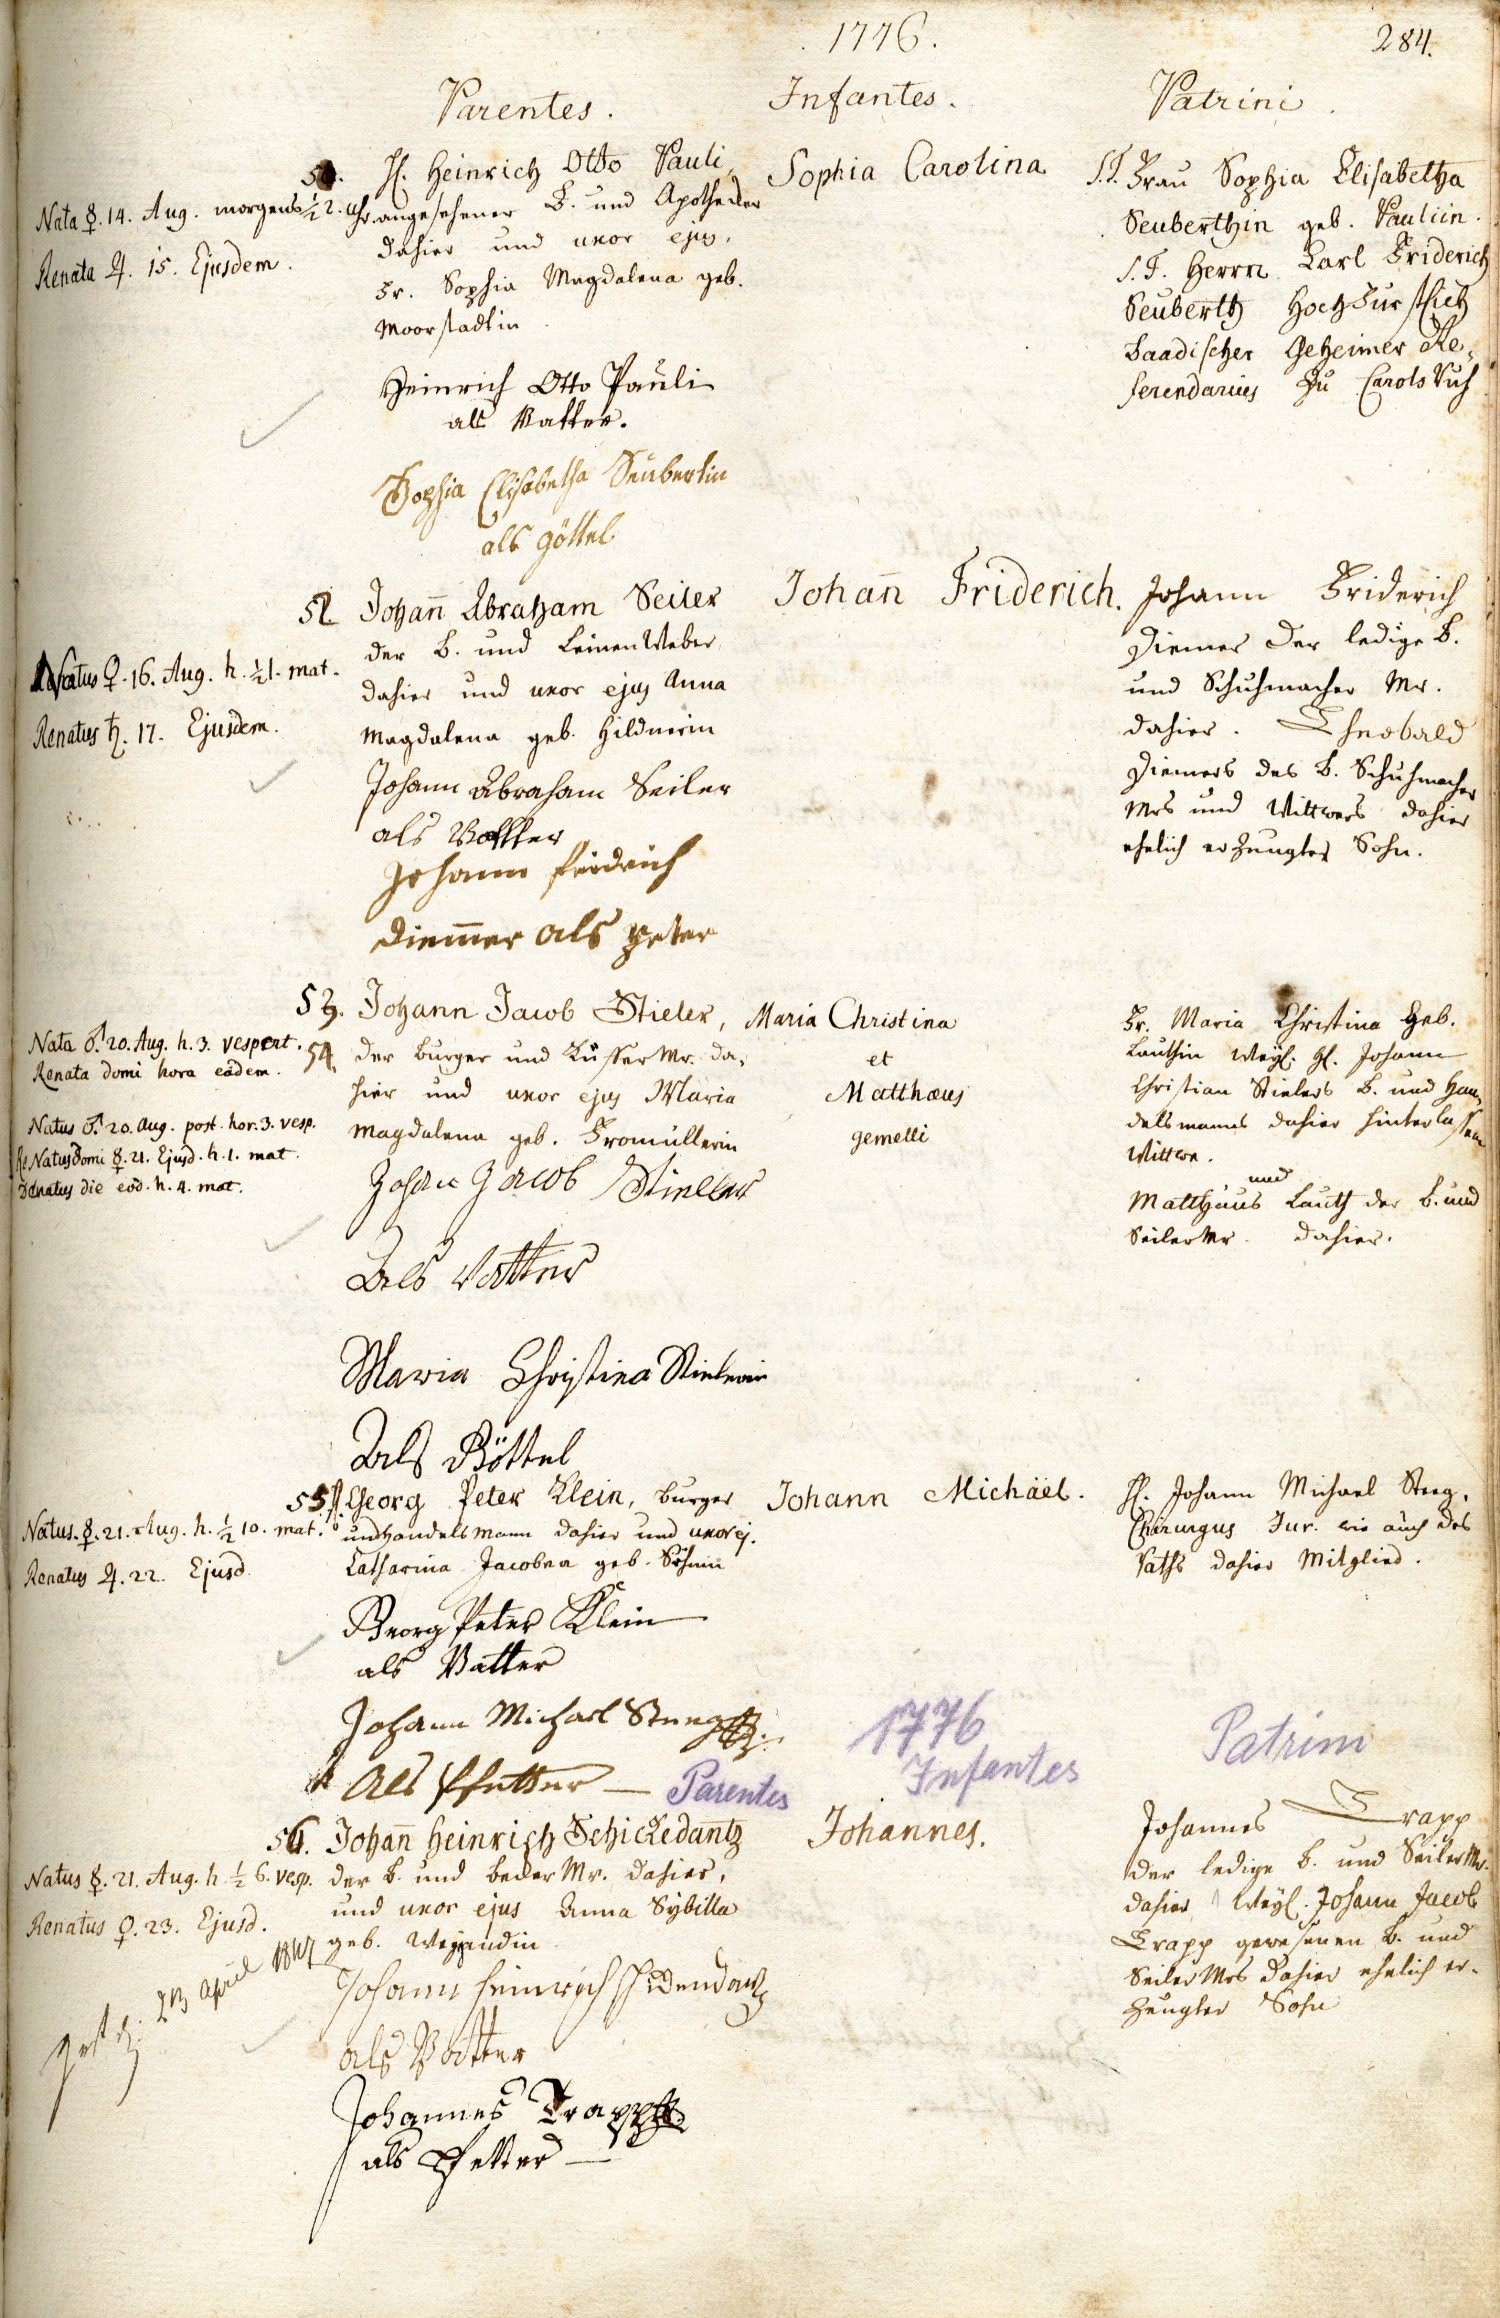 1776.
284.
Parentes.
Infantes.
Patrini
Nata ☿. 14. Aug. morgens ½ 2. uhr.
Renata ♃. 15. Ejusdem.
H. Heinrich Otto Pauli,
angesehener B. und Apothecker
dahier und uxor ejus,
Fr. Sophia Magdalena geb.
Moorstadtin
Heinrich Otto Pauli
als Vatter.
Sophia Elisabetha Seubertin
als Göttel
Sophia Carolina
S.T. Frau Sophia Elisabetha
Seuberthin geb. Pauliin.
S.T. Herrn Carl Friderich
Seuberth HochFürstlich
Baadischer Geheimer Re-
ferendarius zu Carols Ruh
Natus ♀. 16. Aug. h. ½ 1. mat.
Renatus ♄. 17. Ejusdem.
52. Johann̄ Abraham Seiler
der B. und LeinenWeber
dahier und uxor ejus Anna
Magdalena geb. Hildnerin
Johann Abraham Seiler
als Vatter
Johann fridrich
diem̄er als peter
Johan̄ Friderich.
Johann Friderich
Diemer der ledige B.
und Schuhmacher Mr.
dahier. Theobald
Diemers des B. Schuhmacher
Mrs und Wittwers dahier
ehelich erzeugter Sohn.
Nata ♂. 20. Aug. h. 3. vespert.
Renata domi hora eâdem.
Natus ♂. 20. Aug. post. hor. 3. vesp.
ReNatus Domi ☿. 21. Ejusd. h. 1. mat.
Denatus die eod. h. 4. mat.
53. Johann Jacob Stieler,
54. der Burger und Küffer Mr. da-
hier und uxor ejus Maria
Magdalena geb. Fromüllerin
Johan Jacob Stieller
Als Vatter
Maria Christina Stielerin
Als Göttel
Maria Christina
et
Matthæus
gemelli
Fr. Maria Christina Geb.
Lauthin Weyl. H. Johann
Christian Stielers B. und Han-
delsmanns dahier hinterlassene
Wittwe.
und
Matthäus Lauth der B. und
Seiler Mr. dahier.
Natus. ☿. 21. Aug. h. ½ 10. mat.
Renatus ♃. 22. Ejusd.
55. H. Georg Peter Klein, Burger
und Handelsmann dahier und uxor ej.
Catharina Jacobea geb.
Georg Peter Klein
als Vatter
Johann Michael Steeg
Als Pfetter
Johann Michäel.
H. Johann Michael Steeg,
Chirurgus Jur. wie auch des
Raths dahier Mitglied.
Parentes
1776
Infantes
Patrini
Natus ☿. 21. Aug. h. ½ 6. vesp.
Renatus ♀. 23. Ejusd.
gest. d. 23 April 1847
56. Johan̄ Heinrich Schickedantz
der B. und Becker Mr. dahier,
und uxor ejus Anna Sybilla
geb. Weygandin
Johann Heinrich Schickendantz
als Vatter
Johannes Trapp
als Pfetter
Johannes.
Johannes Trapp
der ledige B. und Seiler Mr.
dahier, Weyl. Johann Jacob
Trapp gewesenen B. und
Seiler Mrs dahier ehelich er-
zeugter Sohn